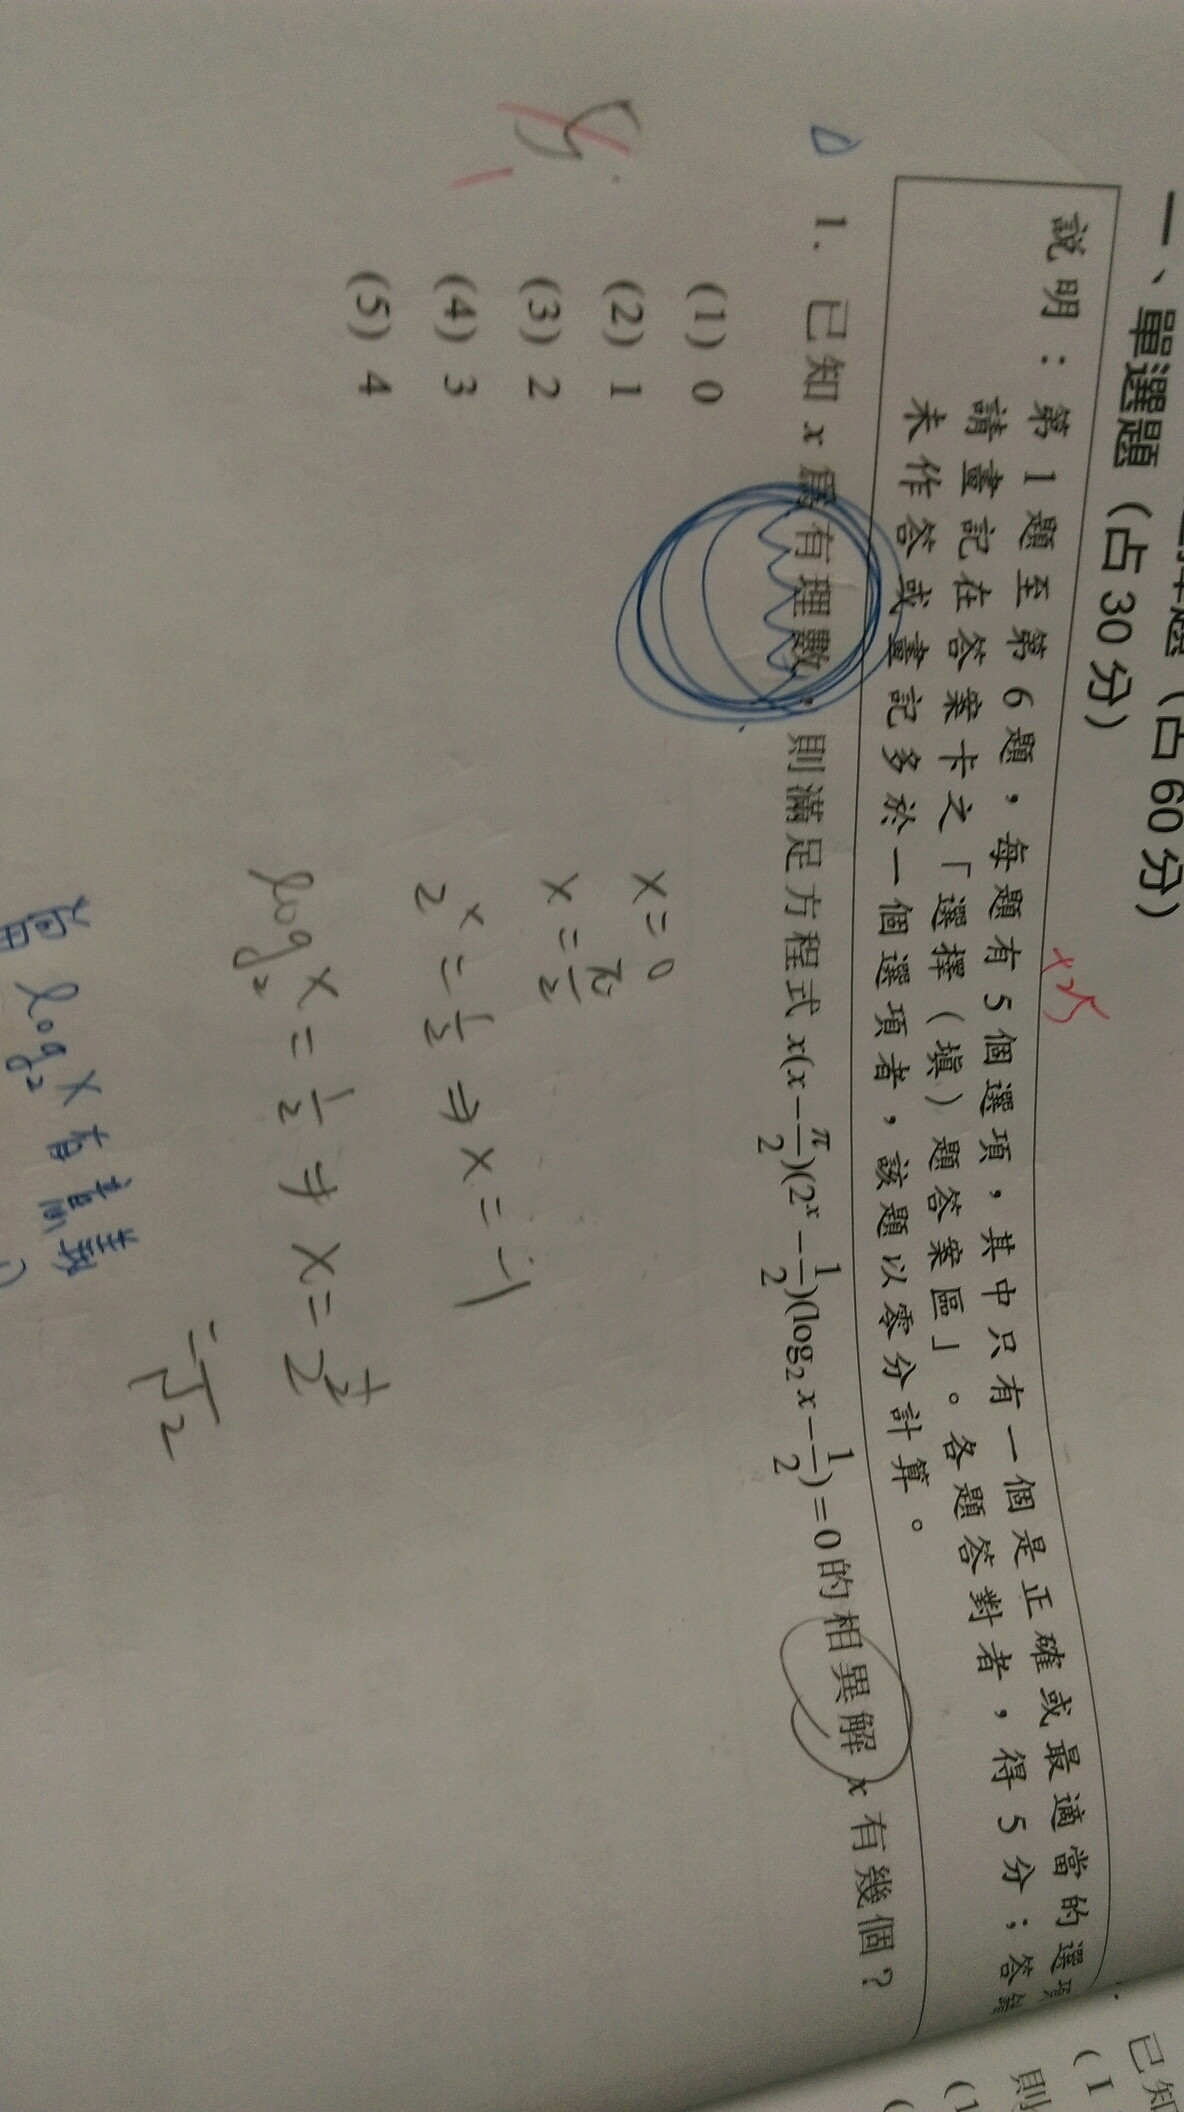 一、單選題（占 30 分）
說明：第 1 題至第 6 題，每題有 5 個選項，其中只有一個是正確或最適當的選項
請畫記在答案卡之「選擇（填）題答案區」。各題答對者，得 5 分；答錯
未作答或畫記多於一個選項者，該題以零分計算。
1. 已知 x 為有理數，則滿足方程式 x(x−π/2)(2^x−1/2)(log₂ x−1/2)=0 的相異解 x 有幾個？
(1) 0
(2) 1
(3) 2
(4) 3
(5) 4
x=0
x=π/2
2^x=1/2 ⇒ x=-1
log₂ x=1/2 ⇒ x=2^(1/2)
=√2
log₂ x 有意義
已知
則